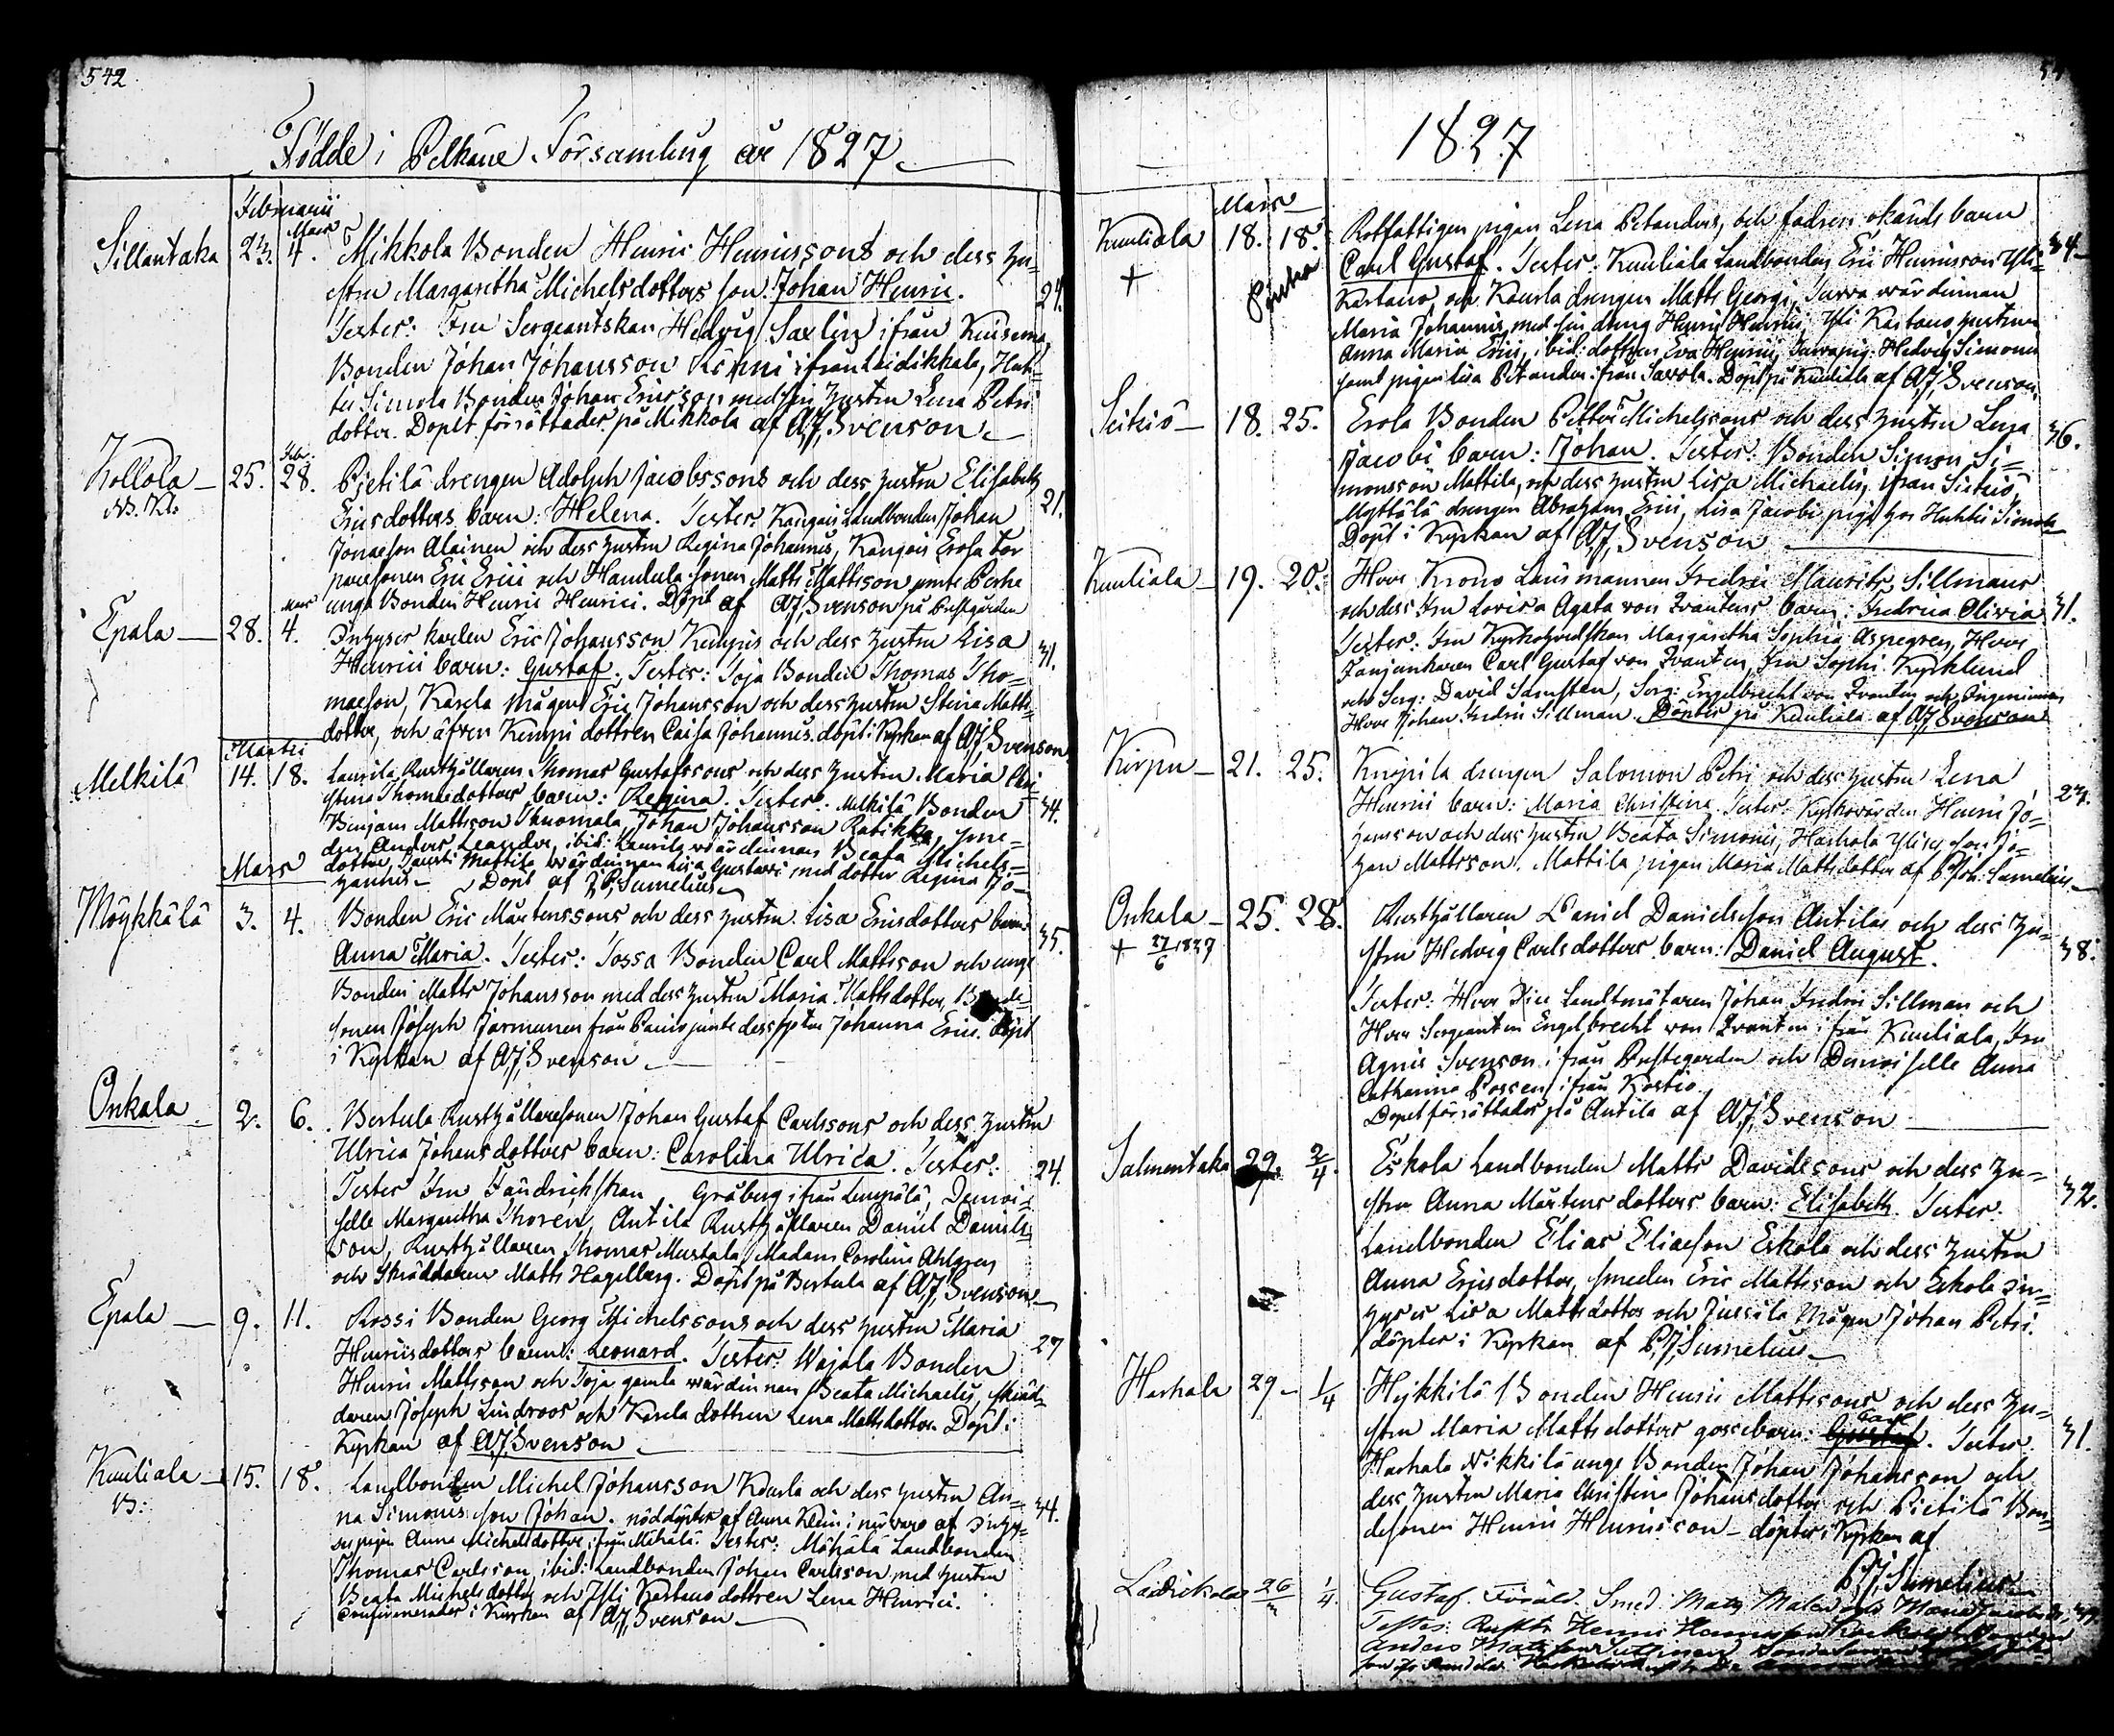 542
Födde i Pelkäne Församling år 1827
Februarii
Mars
Sillantaka 23. 4. Mikkola Bonden Henric Henricssons och dess hu=
stru Margaretha Michelsdotters son: Johan Henric. 24.
Tester: Fru Sergeantskan Hedvig Saxlin ifrån
Bonden Johan Johansson ifrån Laidikkala,
Simola Bonden Johan Ericsson med sin hustru Lena Petri
dotter. Dopet förrättades på Mikkola af A.J. Svenson
Feb.
Kollola 25. 28. Pietilä drengen Adolph Jacobssons och dess hustru Elisabeth
Ericsdotters barn: Helena. Tester: Landbonden Johan 21.
Jonaeson Alainen och dess hustru Regina Johannis, Erola tor
paresonen Eric Erici och Handula sonen Matts Mattsson
unga Bonden Henric Henrici. Döpt af A.J. Svenson på Prestgården
Mars
Epala 28. 4. Inhyses karlen Eric Johansson Kempis och dess hustru Lisa
Henrici barn: Gustaf. Tester: Toja Bonden Thomas Tho= 31.
maeson, Karela mågen Eric Johansson och dess hustru Stina Matts
dotter, och äfven Kempi dottren Caisa Johannis. döpt i Kyrkan af A.J. Svenson
Martii
Melkilä 14. 18. Laurila Rusthållaren Thomas Gustafssons och dess hustru Maria Chri
stina Thomædotters barn: Regina. Tester: Melkilä Bonden 34.
Benjam Mattsson Thuomala, Johan Johansson Ratikka,
Anders Leander, ibid: Laurila wärdinnan Beata Michels=
dotter, Mattila wärdinnan Lisa Gustavi med dotter Regina Jo=
hannis Döpt af P.J. Sumelius
Mars
Möykkälä 3. 4. Bonden Eric Mårtenssons och dess hustru Lisa Ericsdotters barn:
Anna Maria. Tester: Tossa Bonden Carl Mattsson och unge 35.
Bonden Matts Johansson med dess hustru Maria Mattsdotter, Bonde=
sonen Joseph från jämte dess syster Johanna Erici. döpt
i Kyrkan af A.J. Svenson
Onkala 2. 6. Bertula Rusthållaresonen Johan Gustaf Carlssons och dess hustru
Ulrica Johansdotters barn: Carolina Ulrica. Tester: 24.
Tester Fru Fändrickskan Gråberg ifrån Lempälä, Demoi=
selle Margaretha Thoren, Antila Rusthållaren Daniel Daniels
son, Rusthållaren Thomas Mustala, Madam Carolina Ahlgren
och Skräddaren Matts Hagelberg. Döpt på Bertula af A.J. Svenson
Epala 9. 11. Rossi Bonden Georg Michelssons och dess hustru Maria
Henricsdotters barn: Leonard. Tester: Wajala Bonden 27
Henric Mattsson och Toja gamla wärdinnan Beata Michaelis, Skräd=
daren Joseph Lindroos och Karela dottren Lena Mattsdotter. Döpt i
Kyrkan af A.J. Svenson
Kuuliala 15. 18. Landbonden Michel Johansson Kaurla och dess hustru An=
na Simonis: son Johan. nöddöpter af Anna Klein i närvaro af Inhy= 34.
ses pigan Anna Michelsdotter, ifrån Mähälä. Tester: Mähälä Landbonden
Thomas Carlsson, ibid: Landbonden Johan Carlsson med hustru
Beata Michelsdotter och Yli Kartano dottren Lena Henrici.
Confirmerades i Kyrkan af A.J. Svenson
1827
Mars
Kuuliala 18. 18. Rotfattigen pigan Lena Petanders, och fadren okänds barn
+ Carl Gustaf. Tester: Kuuliala Landbonden Eric Henricsson Yli= 34
Kartano, och Kaurla drengen Matts Georgi, wärdinnan
Maria Johannis med sin dreng Henric Henrici, Yli Kartano hustrun
Anna Maria Erici, ibid: dottren Eva Henrici, Hedvig Simonis
samt pigan Lisa Petander från Saxola. Döpt på Kuuliala af A.J. Svenson
Seitiö 18. 25. Erola Bonden Petter Michelssons och dess hustru Lena
Jacobi barn: Johan. Tester: Bonden Simon Si= 36.
monsson Mattila, och dess hustru Lisa Michaelis, ifrån Seitiö,
Myttälä drengen Abraham Erici, Lisa Jacobi piga hos Huhti Simola
Döpt i Kyrkan af A.J. Svenson
Kuuliala 19. 20. Herr Krono Länsmannen Fredric Maurits Sillmans
och dess Fru Lovisa Agata von Qvantens barn: Fredrica Olivia 31.
Tester: Fru Margaretha Sophia Aspegren, Herr
Fanjunkaren Carl Gustaf von Qvanten, Fru Sophi Kyrklund
och Serg: David Samsten, Serg: Engelbrecht von Qvanten och Ingenieuren
Herr Johan Fredric Sillman. Döptes på Kuuliala af A.J. Svenson
Kirpu 21. 25. Knipila drengen Salomon Petri och dess hustru Lena
Henrici barn: Maria Christina. Tester: Kyrkovärden Henric Jo= 27.
hansson och dess hustru Beata Simonis, Harhala son Jo=
han Mattsson. Mattila pigan Maria Mattsdotter af P.Joh: Sumelius
Onkala 25. 28. Rusthållaren Daniel Danielsson Antilas och dess hu=
+ 27/6 1827 stru Hedvig Carlsdotters barn: Daniel August. 38.
Tester: Herr Vice Landtmätaren Johan Fredric Sillman och
Herr Sergeanten Engelbrecht von Qvanten ifrån Kuuliala, Fru
Agnes Svenson ifrån Prestegården och Demoiselle Anna
Catharina Possen ifrån Kostio.
Dopet förrättades på Antila af A.J. Svenson
Salmentaka 29. 2/4. Eskola Landbonden Matts Davidssons och dess hu=
stru Anna Mårtensdotters barn: Elisabeth. Tester: 32.
Landbonden Elias Eliaeson Eskola och dess hustru
Anna Ericsdotter, smeden Eric Mattsson och Eskola in=
hyses Lisa Mattsdotter och Jussila mågen Johan Petri.
döptes i Kyrkan af P.J. Sumelius
Harhala 29. 1/4 Hykkilä Bonden Henric Mattssons och dess hu=
stru Maria Mattsdotters gossebarn: Carl. Tester 31.
Harhala Nikkilä unge Bonden Johan Johansson och
dess hustru Maria Christina Johansdotter och Pietilä Bon=
desonen Henric Henricsson döptes i Kyrkan af
P.J. Sumelius
Laidickala 26 1/4. Gustaf. Föräld. Smed. Mats och Maria
Testes: Henric
Anders